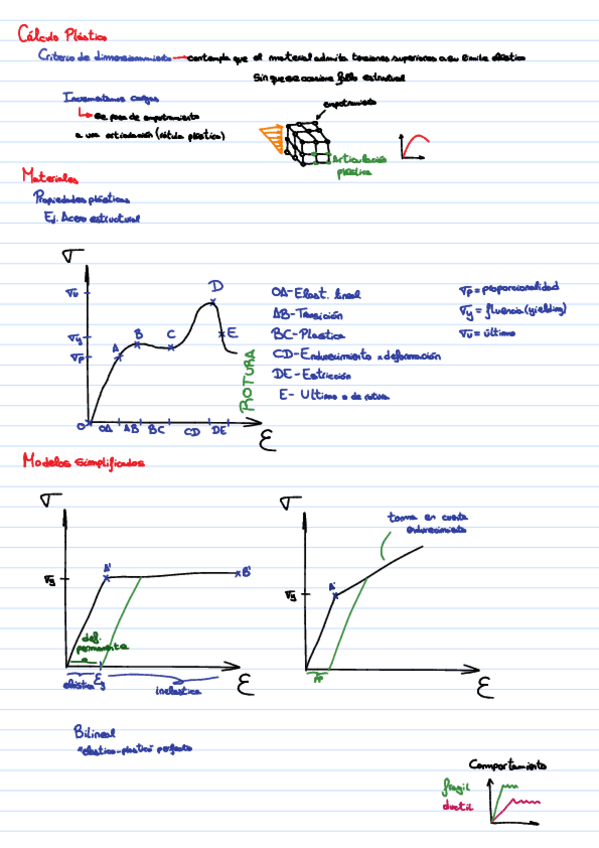 Cálculo Plástico
Criterio de dimensionamiento → contempla que el material admita tensiones superiores a su límite elástico
Sin que se ocasione fallo estructural
Incrementamos cargas
se pasa de empotramiento
a una articulación (rótula plástica)
empotramiento
Articulación
plástica
Materiales
Propiedades plásticas
Ej. Acero estructural
σ
σu
σy
σp
A
B
C
D
E
ROTURA
O
OA
AB
BC
CD
DE
ε
OA- Elast. lineal
AB- Transición
BC- Plastica
CD- Endurecimiento x deformación
DE- Estricción
E- Ultimo o de rotura
σp = proporcionalidad
σy = fluencia (yielding)
σu = último
Modelos simplificados
σ
σy
A'
B'
def.
permanente
elástica
εy
inelastica
ε
Bilineal
"elastico-plastico" perfecto
σ
σy
A'
toma en cuenta
endurecimiento
ε
Comportamiento
fragil
ductil